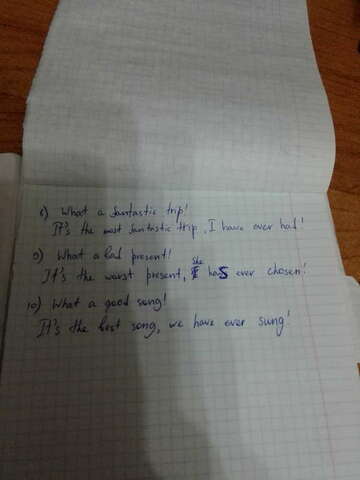 8) What a fantastic trip!
It's the most fantastic trip, I have ever had!
9) What a bad present!
It's the worst present, she has ever chosen!
10) What a good song!
It's the best song, we have ever sung!